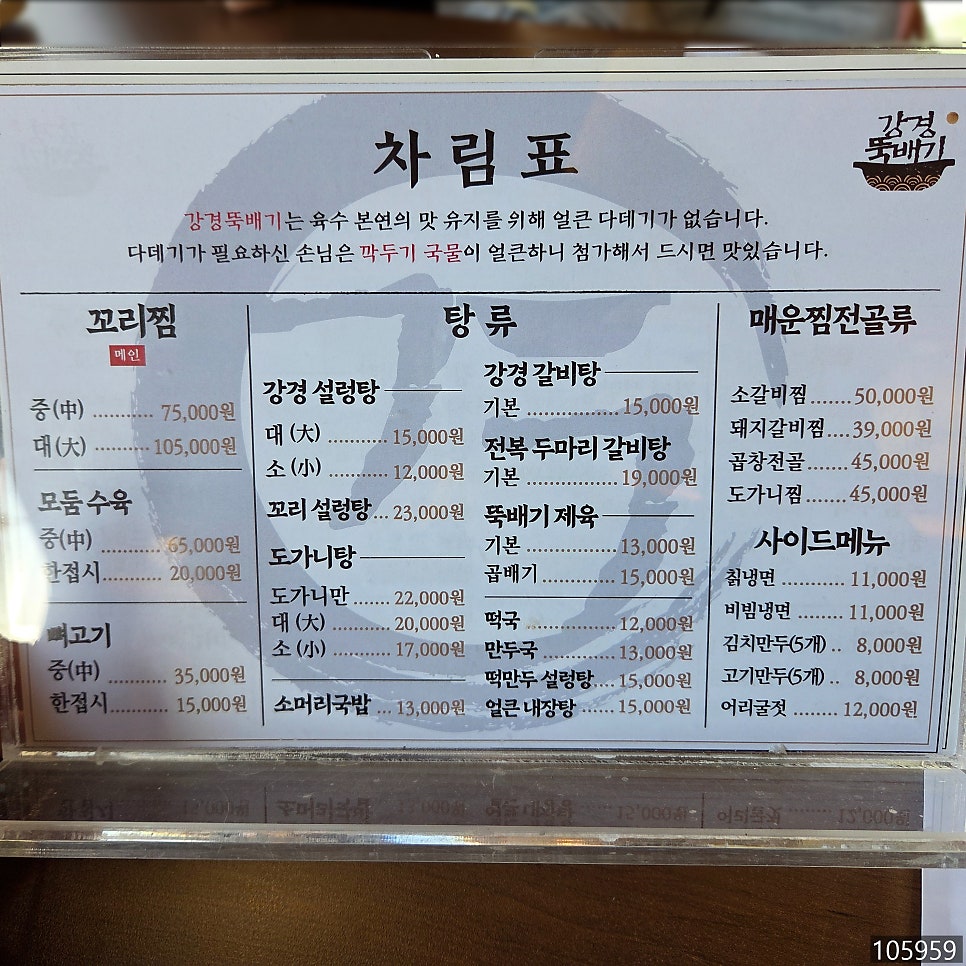 차림표
강경
뚝배기
강경뚝배기는 육수 본연의 맛 유지를 위해 얼큰 다데기가 없습니다.
다데기가 필요하신 손님은 깍두기 국물이 얼큰하니 첨가해서 드시면 맛있습니다.
꼬리찜
메인
중(中) ........... 75,000원
대(大) ........... 105,000원
모둠 수육
중(中) ........... 65,000원
한접시........... 20,000원
뼈고기
중(中) ........... 35,000원
한접시 ........... 15,000원
탕류
강경 설렁탕
대 (大) ........... 15,000원
소 (小) ........... 12,000원
꼬리 설렁탕... 23,000원
도가니탕
도가니만....... 22,000원
대 (大) ........... 20,000원
소 (小) ........... 17,000원
소머리국밥 ... 13,000원
강경 갈비탕
기본 ................ 15,000원
전복 두마리 갈비탕
기본 ................ 19,000원
뚝배기 제육
기본 ................ 13,000원
곱배기 ............. 15,000원
떡국 ............... 12,000원
만두국 ............. 13,000원
떡만두 설렁탕.... 15,000원
얼큰 내장탕 ...... 15,000원
매운찜전골류
소갈비찜 ....... 50,000원
돼지갈비찜.... 39,000원
곱창전골 ....... 45,000원
도가니찜 ....... 45,000원
사이드메뉴
칡냉면 ........... 11,000원
비빔냉면 ........ 11,000원
김치만두(5개) .. 8,000원
고기만두(5개) .. 8,000원
어리굴젓 ........ 12,000원
105959